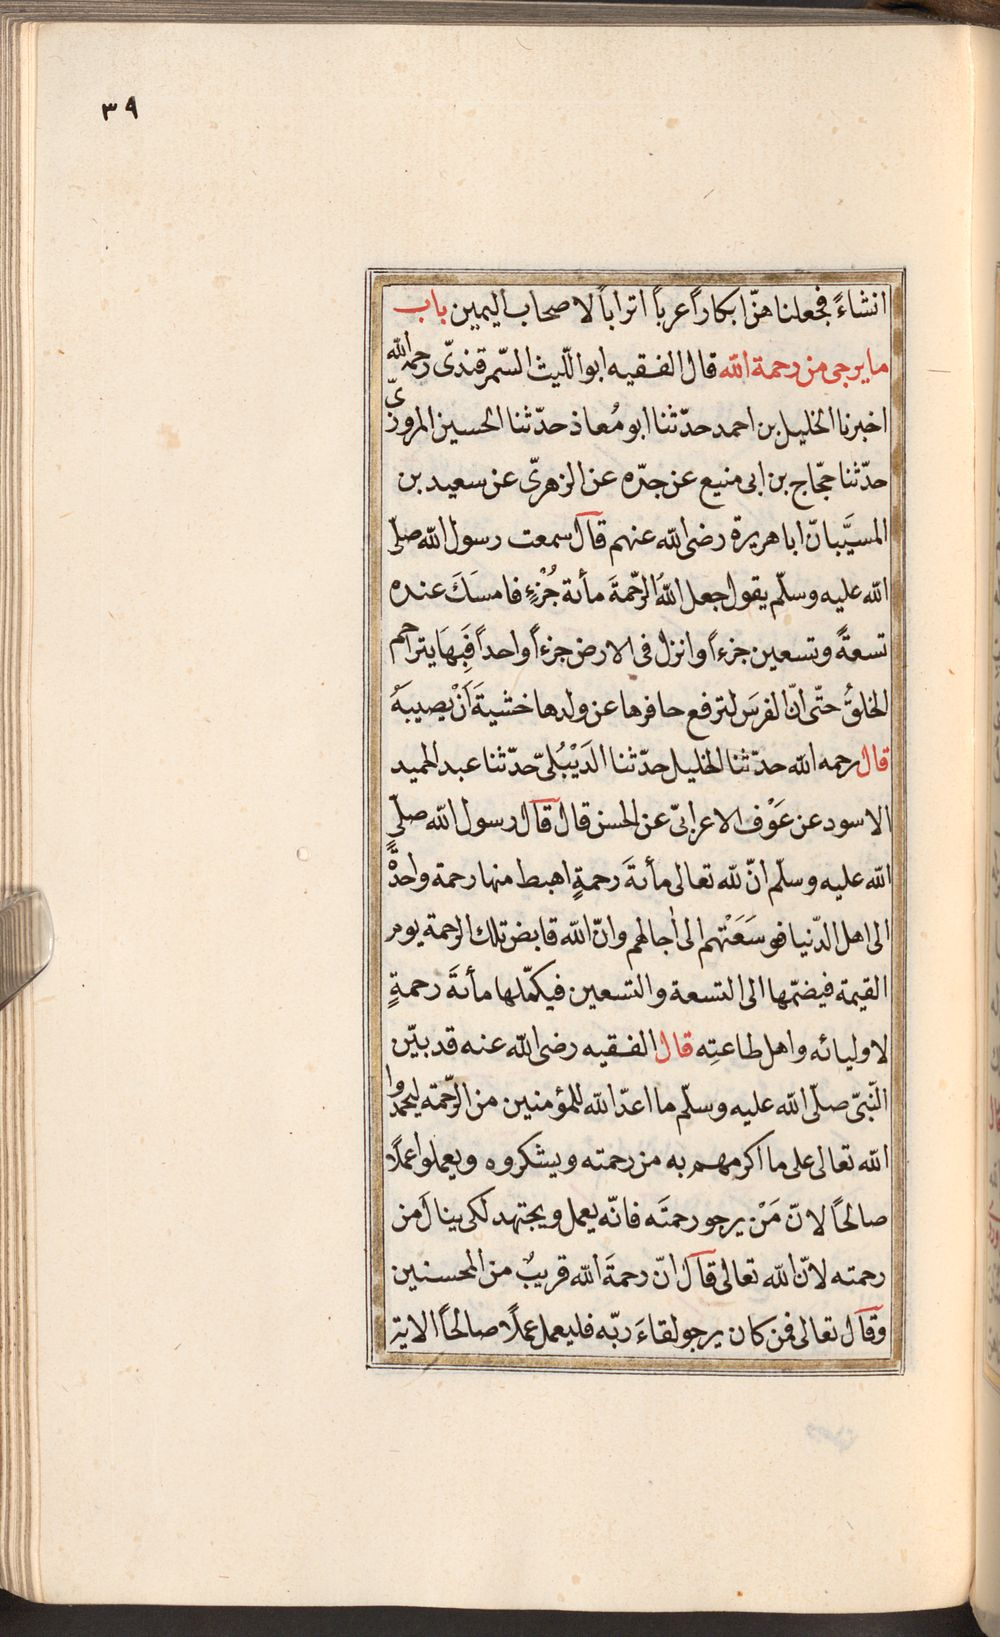 ٣٩
انشاءً فجعلناهنّ ابكاراً عرباً اتراباً لاصحاب اليمين باب
ما يرجى من رحمة الله قال الفقيه ابو اللّيث السّمرقندىّ رحمه الله
اخبرنا الخليل بن احمد حدّثنا ابو مُعاذ حدّثنا الحسين المروزىّ
حدّثنا حجّاج بن ابى منيع عن جدّه عن الزهرىّ عن سعيد بن
المسيَّب انّ ابا هريرة رضى الله عنهم قال سمعت رسول الله صلّى
الله عليه وسلّم يقول جعل اللهُ الرّحمةَ مأئة جُزْءٍ فامسَكَ عنده
تسعةً وتسعين جزءاً وانزل فى الارض جزءاً واحداً فَبِهَا يتراحم
الخلقُ حتّى انّ الفرسَ لترفع حافرها عن ولدها خشيةَ اَنْ يصيبهُ
قال رحمه الله حدّثنا الخليل حدّثنا الدَيْبُلىّ حدّثنا عبد الحميد
الاسود عن عَوْف الاعرابىّ عن الحسن قال قال رسول الله صلّى
الله عليه وسلّم انّ لله تعالى مأئةَ رحمةٍ اهبط منها رحمة واحدةً
الى اهل الدّنيا فوسَعَتْهم الى اٰجالهم وانّ الله قابض تلك الرحمة يوم
القيمة فيضمّها الى التسعة والتسعين فيكمّلها مأئةَ رحمةٍ
لاوليائه واهل طاعتِه قال الفقيه رضى الله عنه قد بيّن
النّبىّ صلّى الله عليه وسلّم ما اعدّ الله للمؤمنين من الرّحمة ليحمدوا
الله تعالى على ما اكرمهم به من رحمته ويشكروه ويعملوا عملًا
صالحًا لانّ مَنْ يرجو رحمتَه فانّه يعمل ويجتهد لكى ينالَ من
رحمته لانّ الله تعالى قال انّ رحمةَ الله قريبٌ من المحسنين
وقال تعالى فمن كان يرجو لقاءَ ربّه فليعمل عملًا صالحًا الاية